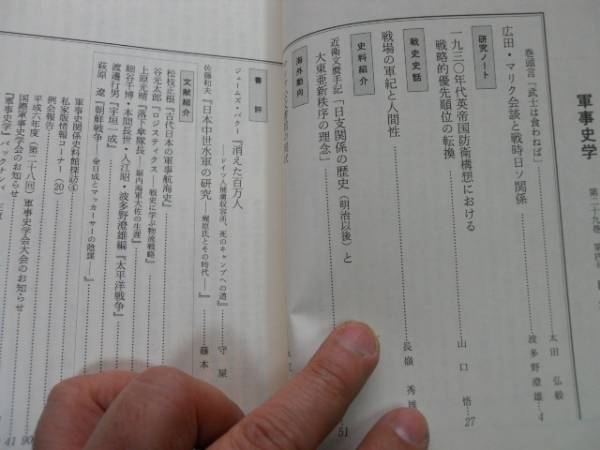 軍事史学
第二十九巻 第四
巻頭言「武士は食わねば」
太田 弘毅
広田・マリク会談と戦時日ソ関係
波多野澄雄…4
研究ノート
一九三〇年代英帝国防衛構想における
戦略的優先順位の転換
山口 悟…27
戦史史話
戦場の軍紀と人間性
長嶺 秀雄
史料紹介
近衛文麿手記「日支関係の歴史（明治以後）と
大東亜新秩序の理念」
51
海外動向
書評
ジェームズ・バクー『消えた百万人
――ドイツ人捕虜収容所、死のキャンプへの道』
守屋
佐藤和夫『日本中世水軍の研究
――梶原氏とその時代――』
藤本
文献紹介
松枝正根『古代日本の軍事航海史』
谷光太郎『ロジスティクス――戦史に学ぶ物流戦略』
上原光晴『落下傘隊長――堀内海軍大佐の生涯』
細谷千博・本間長世・入江昭・波多野澄雄編『太平洋戦争』
渡邊行男『宇垣一成』
萩原 遼『朝鮮戦争――金日成とマッカーサーの陰謀――』
軍事史関係史料館探訪④
私家版情報コーナー（20）
例会報告
平成六年度（第二十八回）軍事史学会大会のお知らせ
国際軍事史学会のお知らせ
『軍事史学』バックナンバ
41
90